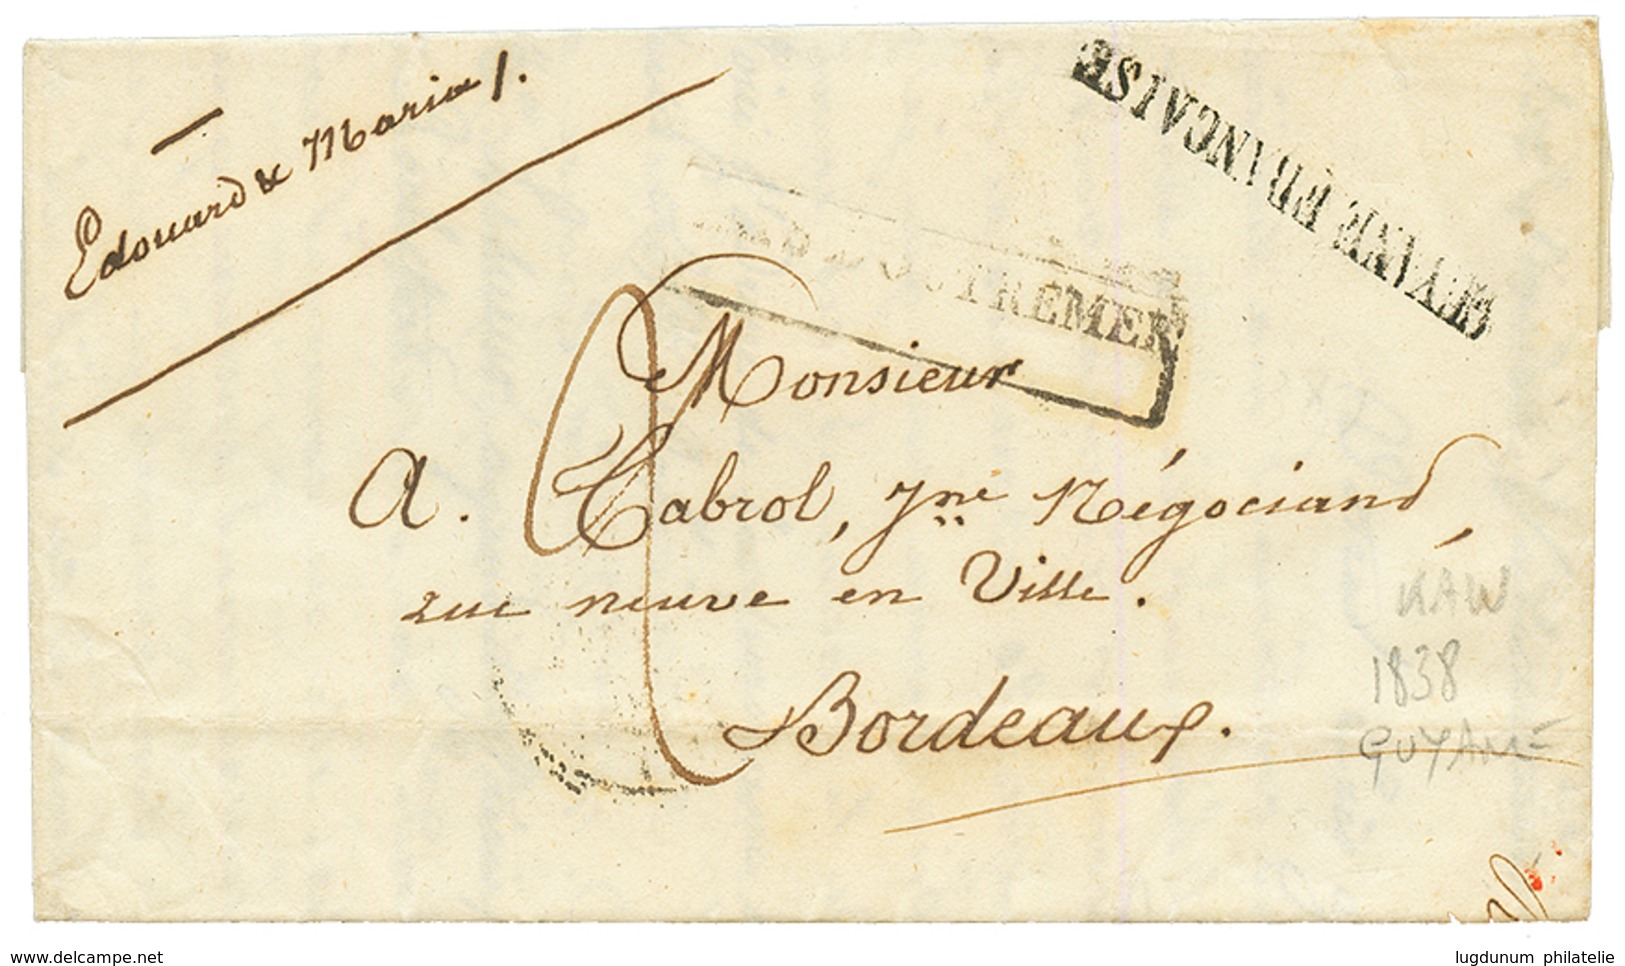 Edouard & Maria /.
GUYANE FRANCAISE
OUTREMER
Monsieur
A. Cabrol, Jne Négociand,
rue neuve en Ville.
Bordeaux.
KAW
1838
GUYANE
www.delcampe.net
lugdunum philatelie